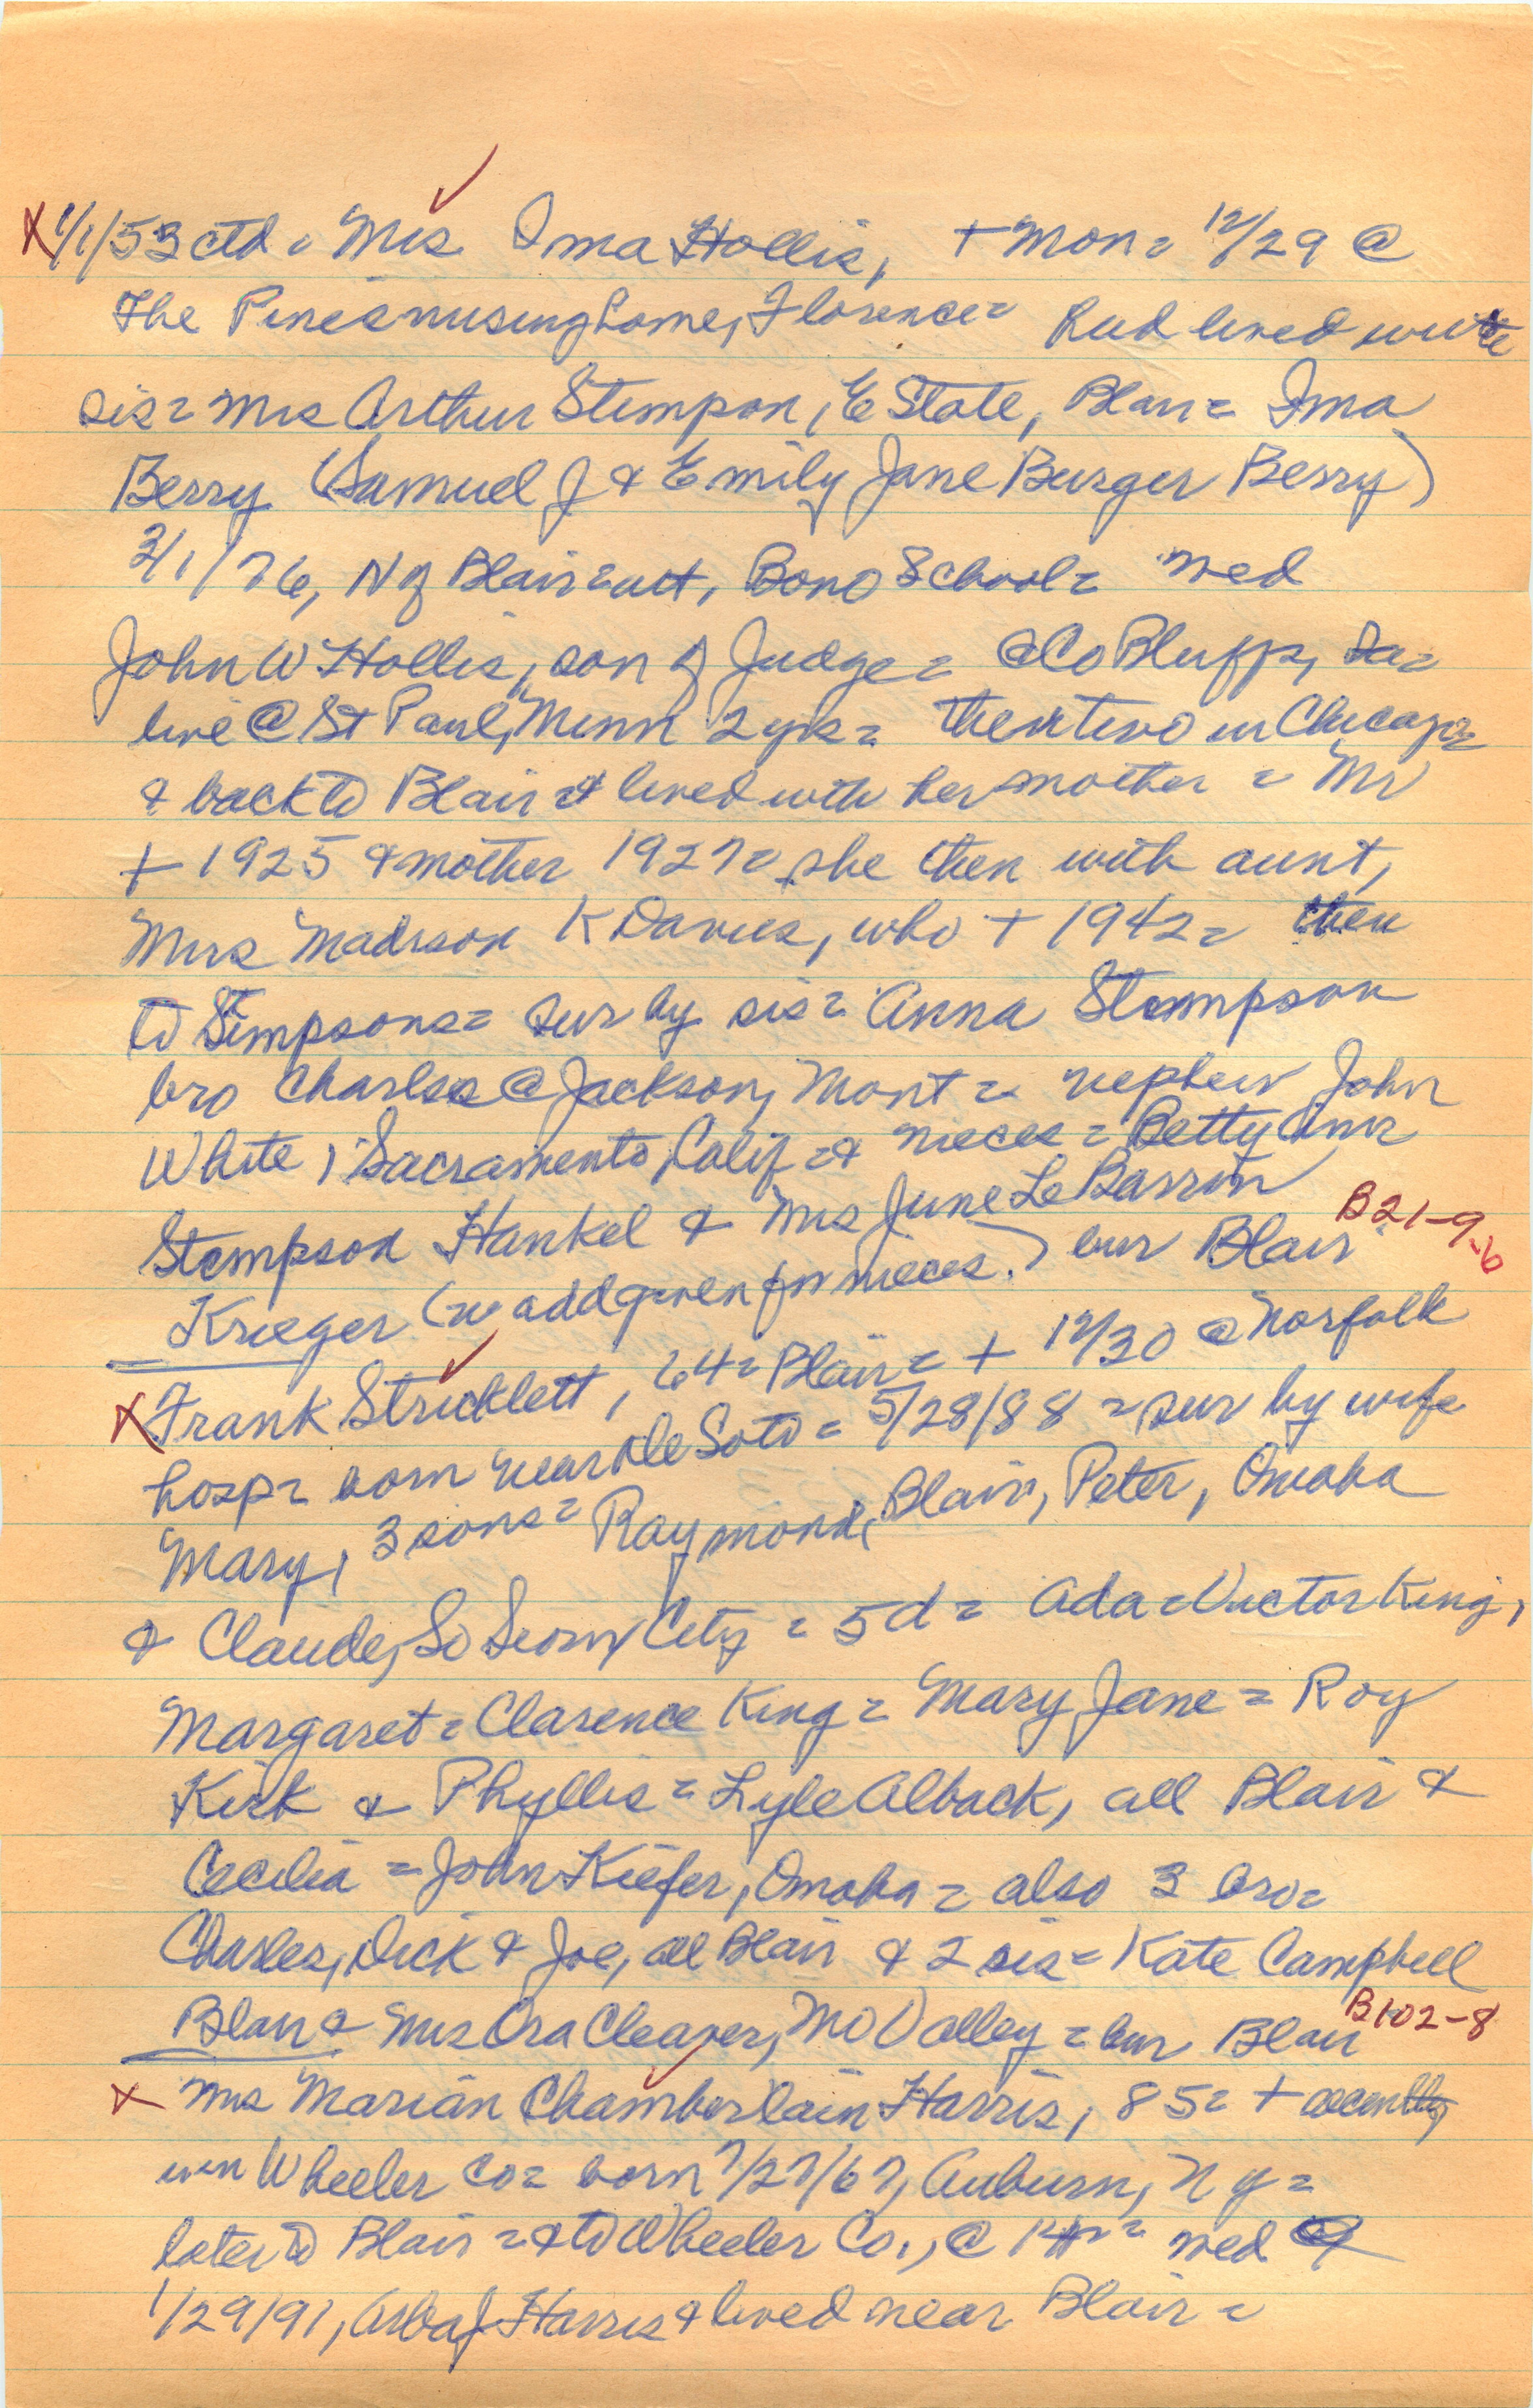 X 1/1/53 ctd = Mrs Ima Hollis, + Mon = 12/29 @
The Pines nursing home, Florence = had lived with
sis = Mrs Arthur Stimpson, E State, Blair = Ima
Berry (Samuel J & Emily Jane Burger Berry)
3/1/76, N of Blair = att, Bono School = wed
John W Hollis, son of Judge = @ Co Bluffs, Ia =
live @ St Paul, Minn 2 yrs = then two in Chicago =
& back to Blair & lived with her mother = Mr
+ 1925 & mother 1927 = she then with aunt,
Mrs Madison K Davies, who + 1942 = then
to Stimpsons = sur by sis = Anna Stimpson
bro Charles @ Jackson, Mont = nephew John
White, Sacramento, Calif = & nieces = Betty Ann
Stimpson Hankel & Mrs June LeBarron
Krieger (no add given for nieces.) bur Blair B21-9-6
X Frank Stricklett, 64 = Blair = + 12/30 @ Norfolk
hosp = born near De Soto = 5/28/88 = sur by wife
Mary, 3 sons = Raymond, Blair, Peter, Omaha
& Claude, So Sioux City = 5 d = Ada = Victor King,
Margaret = Clarence King = Mary Jane = Roy
Kirk & Phyllis = Lyle Alback, all Blair &
Cecilia = John Kiefer, Omaha = also 3 bro =
Charles, Dick & Joe, all Blair & 2 sis = Kate Campbell
Blair & Mrs Ora Cleaver, Mo Valley = bur Blair B102-8
X Mrs Marian Chamberlain Harris, 85 = + recently
in Wheeler Co = born 7/27/67, Auburn, N Y =
later to Blair = & to Wheeler Co., @ = wed
1/29/91, Arba J Harris & lived near Blair =